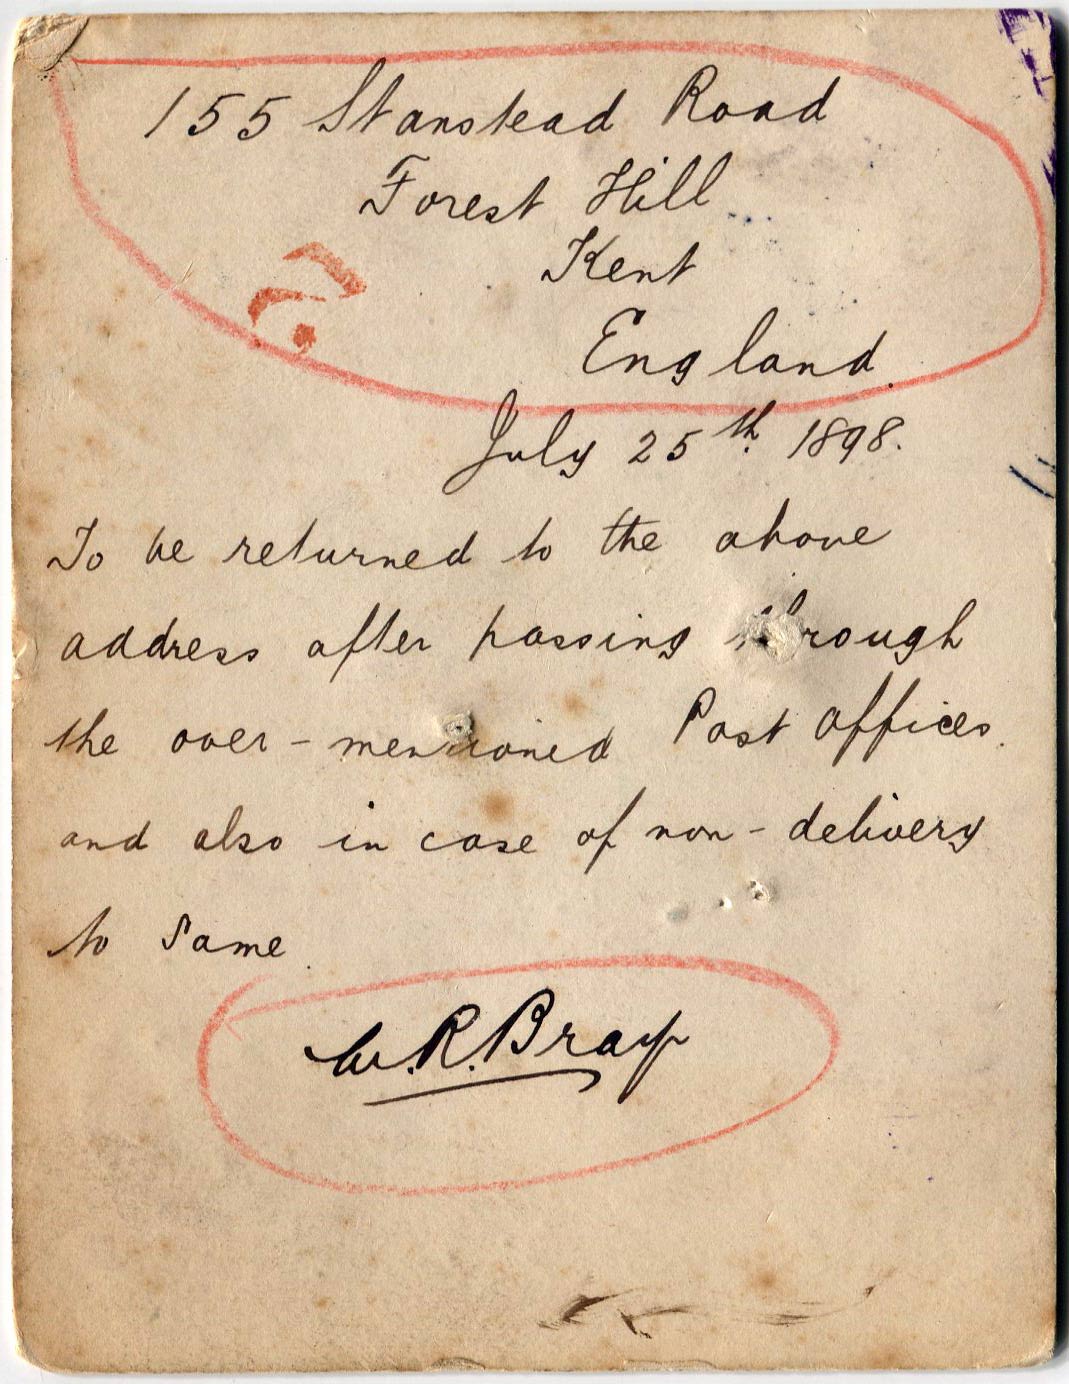 155 Stanstead Road
Forest Hill
Kent
England.
July 25th. 1898.
To be returned to the above
address after passing through
the over-mentioned Post offices.
and also in case of non-delivery
to same.
W.R.Bray